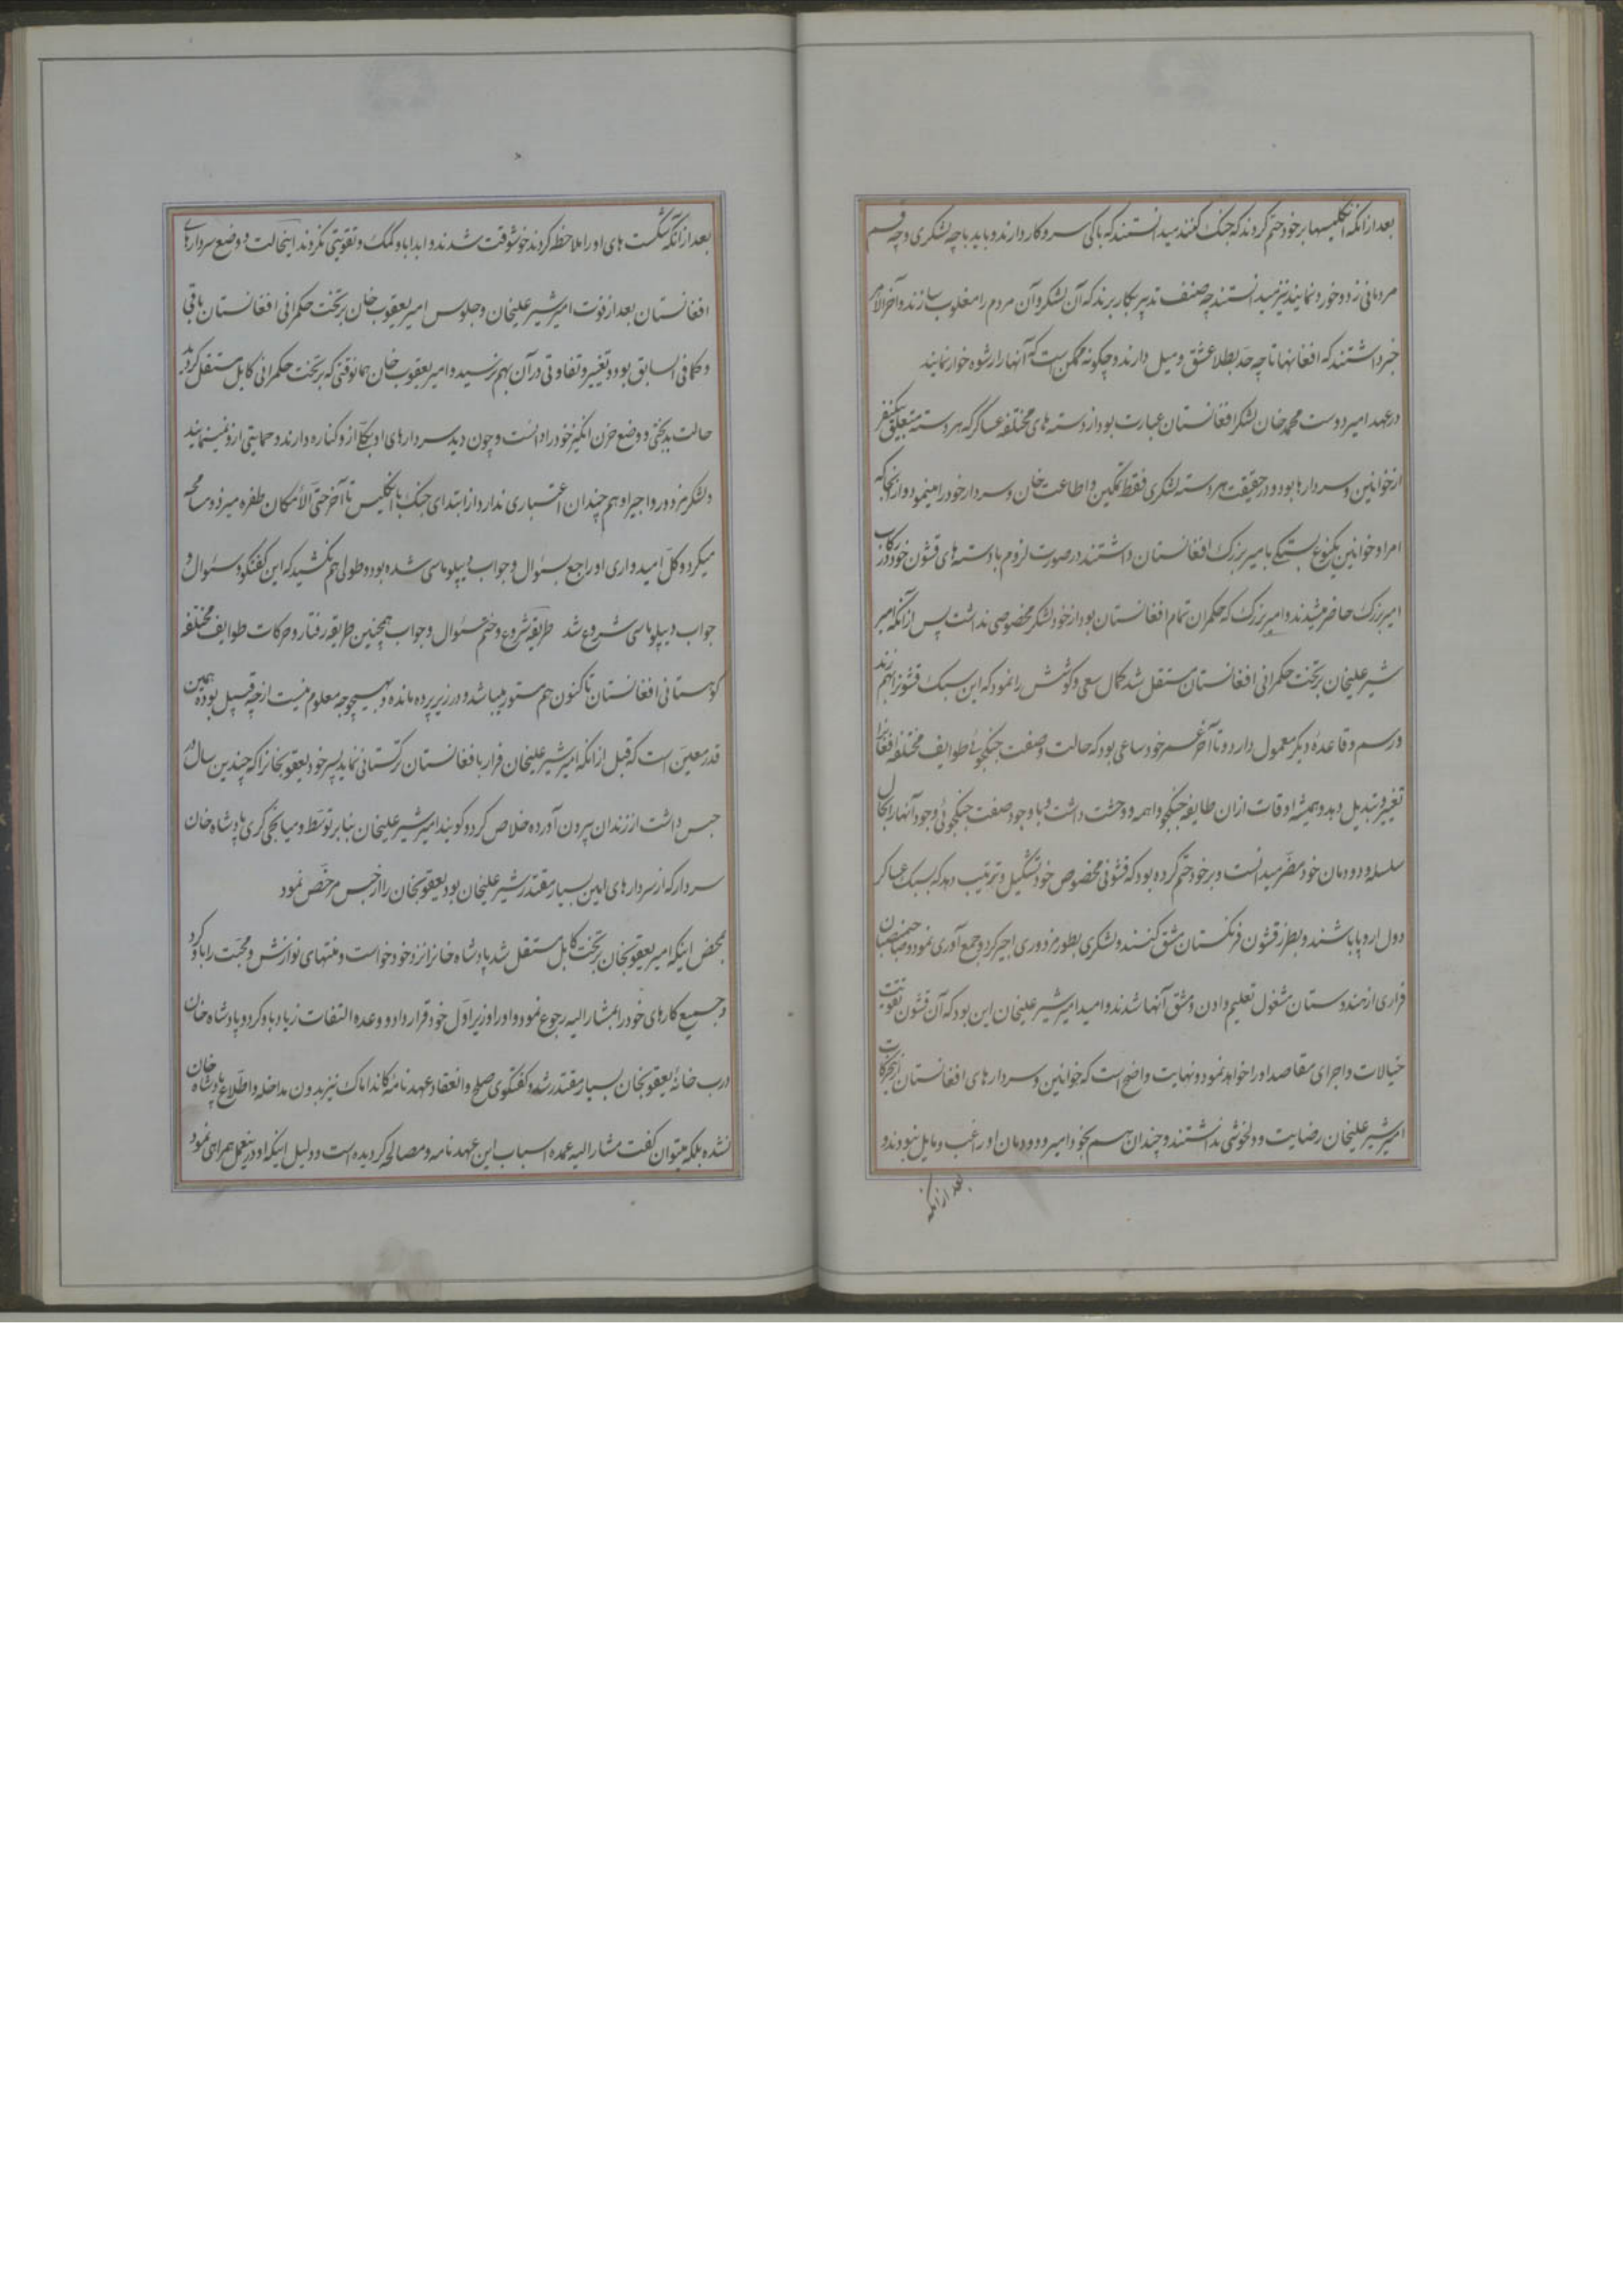 بعد از آنکه انگلیسها بر خود حتم کردند که جنگ کنند میدانستند که با کی سر و کار دارند و باید با چه لشکری و چه قسم
مردمانی زد و خورد نمایند نیز میدانستند چه صنف تدبیر بکار برند که آن لشکر و آن مردم را مغلوب سازند و آخر الامر
خبر داشتند که افغانها تا چه حد بطلا عشق و میل دارند و چگونه ممکن است که آنها را رشوه خوار نمایند
در عهد امیر دوست محمد خان لشکر افغانستان عبارت بود از دسته های مختلفه عساکر که هر دسته متعلق بیکنفر
از خوانین و سردارها بود و در حقیقت هر دسته لشکری فقط تمکین و اطاعت خان و سردار خود را مینمود و از آنجا که
امرا و خوانین یکنوع بستگی با میر بزرگ افغانستان داشتند در صورت لزوم با دسته های قشون خود در رکاب
امیر بزرگ حاضر میشدند و امیر بزرگ که حکمران تمام افغانستان بود از خود لشکر مخصوصی نداشت پس از آنکه امیر
شیر علیخان بر تخت حکمرانی افغانستان مستقل شد کمال سعی و کوشش را نمود که این سبک قشون را بهم زند
و رسم و قاعدهٔ دیگر معمول دارد و تا آخر عمر خود ساعی بود که حالت و صفت جنگجوئی طوایف مختلفه افغان را
تغییر و تبدیل بدهد و همیشه اوقات از آن طایفه جنگجو واهمه و وحشت داشت و با وجود صفت جنگجوئی وجود آنها را بحال
سلسله و دودمان خود مضر میدانست و بر خود حتم کرده بود که قشونی مخصوص خود تشکیل و ترتیب دهد که بسبک عساکر
دول اروپا باشند و بطرز قشون فرنگستان مشق کنند و لشکری بطور مزدوری اجیر کرد و جمع آوری نمود و صاحبمنصبان
فراری از هندوستان مشغول تعلیم دادن و مشق آنها شدند و امید امیر شیر علیخان این بود که آن قشون تقویت
خیالات و اجرای مقاصد او را خواهد نمود و نهایت واضح است که خوانین و سردارهای افغانستان از حرکات
امیر شیر علیخان رضایت و دلخوشی نداشتند و چندان هم بخود امیر و دودمان او راغب و مایل نبودند و
بعد از آنکه
بعد از آنکه شکست های او را ملاحظه کردند خوشوقت شدند و ابدا باو کمک و تقویتی نکردند اینحالت و وضع سردارهای
افغانستان بعد از فوت امیر شیر علیخان و جلوس امیر یعقوب خان بر تخت حکمرانی افغانستان باقی
و کما فی السابق بود و تغییر و تفاوتی در آن بهم نرسید و امیر یعقوب خان همانوقتی که بر تخت حکمرانی کابل مستقل گردید
حالت بدبختی و وضع حزن انگیز خود را دانست و چون دید سردارهای او یکجا از او کناره دارند و حمایتی از او نمینمایند
و لشکر مزدور و اجیر او هم چندان اعتباری ندارد از ابتدای جنگ با انگلیس تا آخر حتی الامکان طفره میزد و مسامحه
میکرد و کل امیدواری او راجع بسئوال و جواب دیپلوماسی شده بود و طولی هم نکشید که این گفتگو و سئوال و
جواب دیپلوماسی شروع شد طریقه شروع و ختم سئوال و جواب همچنین طریقه رفتار و حرکات طوایف مختلفه
کوهستانی افغانستان تا کنون هم مستور میباشد و در زیر پرده مانده و بهیچوجه معلوم نیست از چه قبیل بوده همین
قدر معین است که قبل از آنکه امیر شیر علیخان فرار بافغانستان ترکستانی نماید پسر خود یعقوبخانرا که چندین سال در
حبس داشت از زندان بیرون آورده خلاص کرد و گویند امیر شیر علیخان بنا بر توسط و میانجی گری پادشاه خان
سردار که از سردارهای امین بسیار مقتدر شیر علیخان بود یعقوبخان را از حبس مرخص نمود
بمحض اینکه امیر یعقوبخان بر تخت کابل مستقل شد پادشاه خانرا نزد خود خواست و منتهای نوازش و محبت را باو کرد
و جمیع کارهای خود را بمشارالیه رجوع نمود و او را وزیر اول خود قرار داد و وعده التفات زیاد باو کرد و پادشاه خان
درب خانهٔ یعقوبخان بسیار مقتدر شد و گفتگوی صلح و انعقاد عهدنامهٔ کانداماک نیز بدون مداخله و اطلاع پادشاه خان
نشده بلکه میتوان گفت مشارالیه عمده اسباب این عهدنامه و مصالحه گردیده است و دلیل اینکه او در اینعمل همراهی نمود